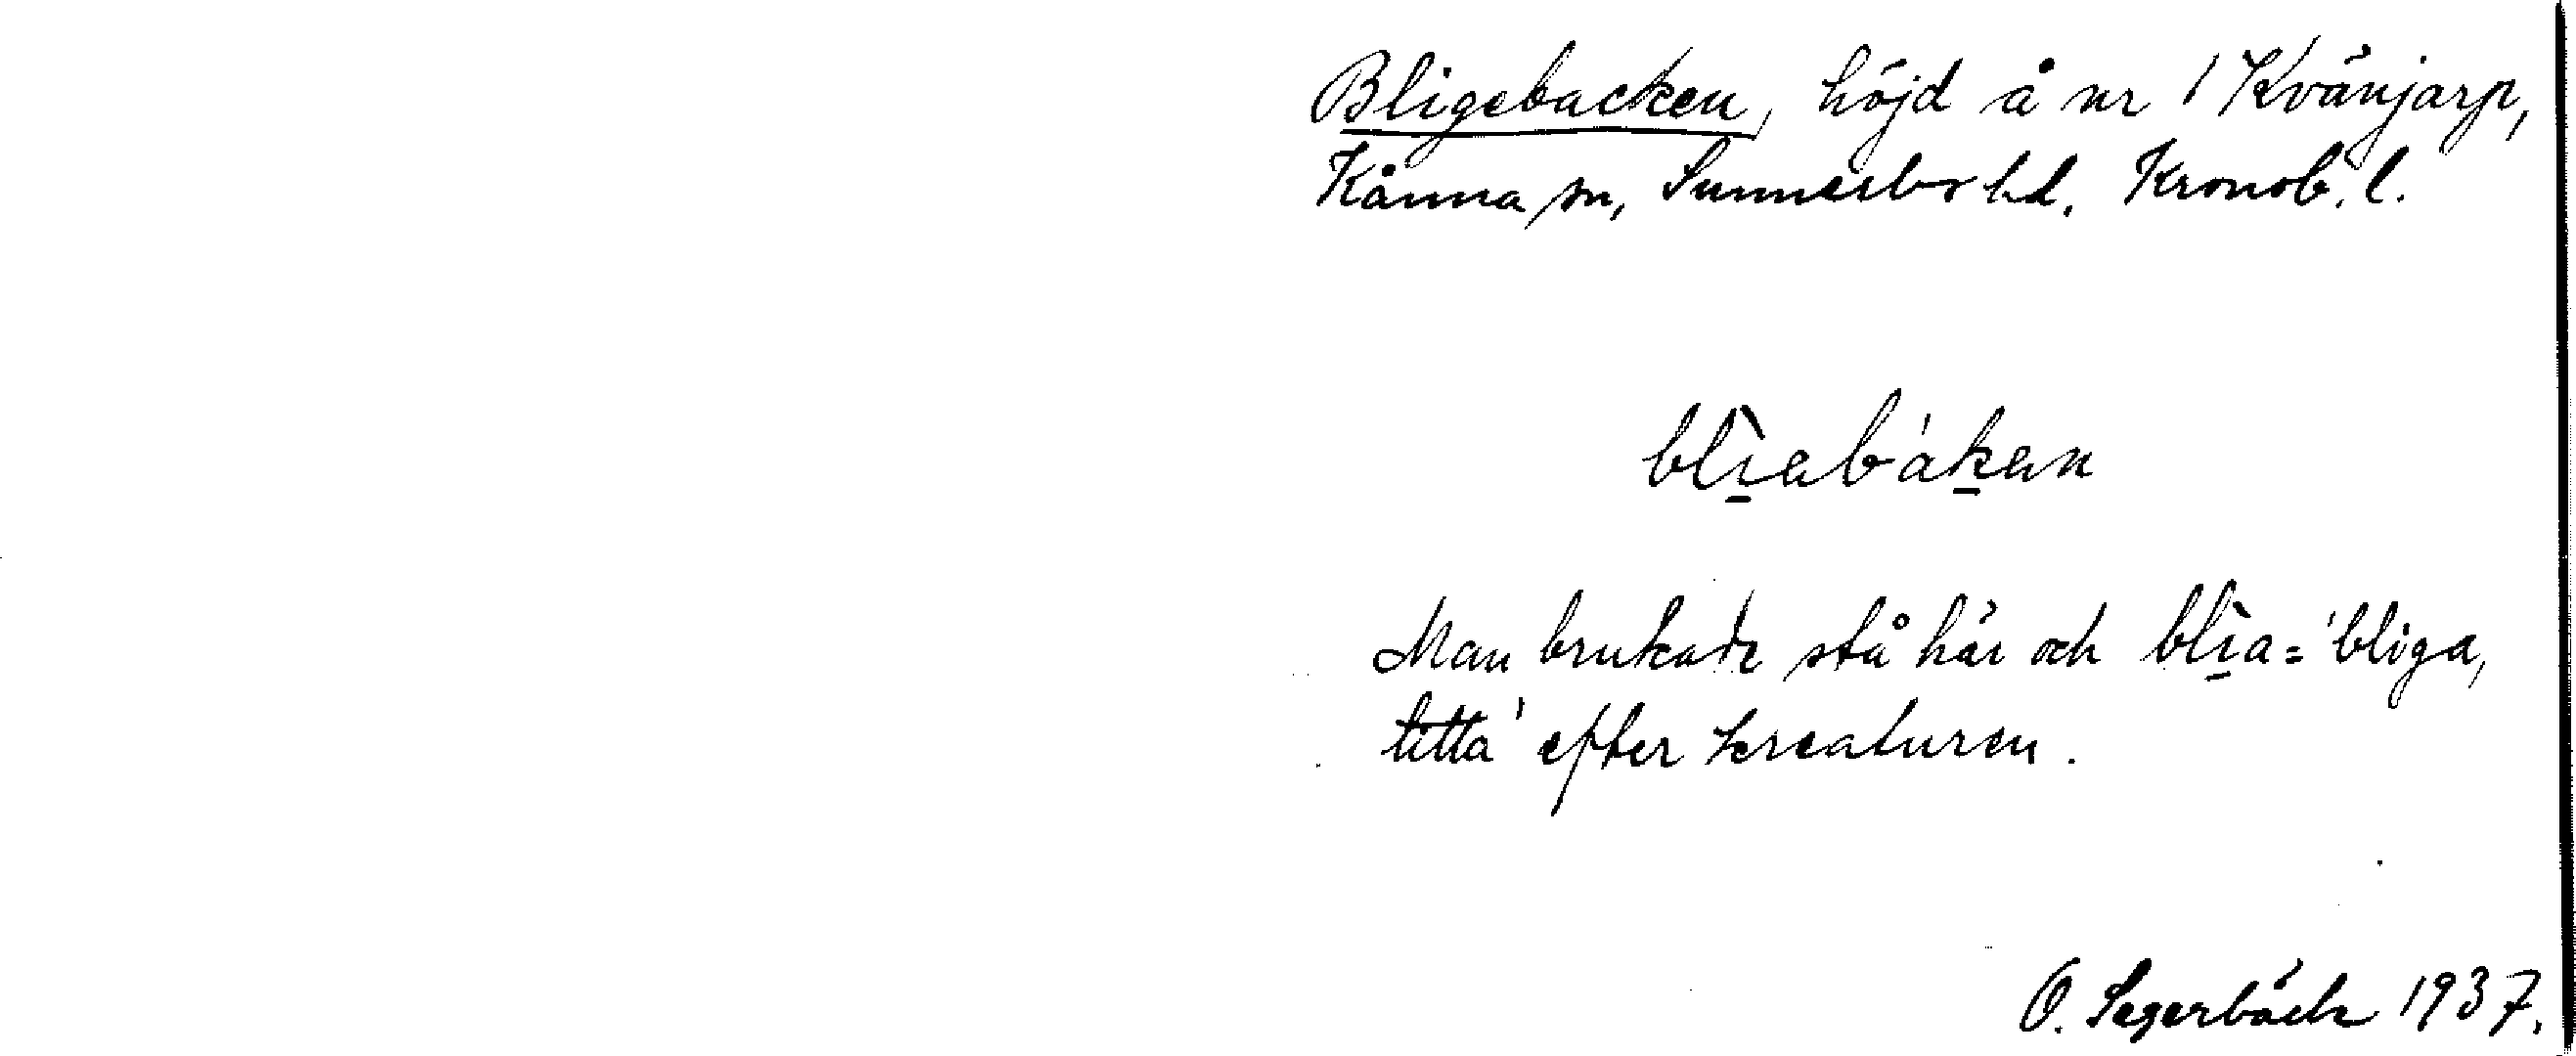 Bligebacken, höjd å nr 1 Kvänjarp,
Kånna sn, Sunnerbo hd. Kronob. l.
blì̱abáḵan
Man brukade stå här och blì̱a = 'bliga,
titta' efter kreaturen.
O. Segerbäck 1937.